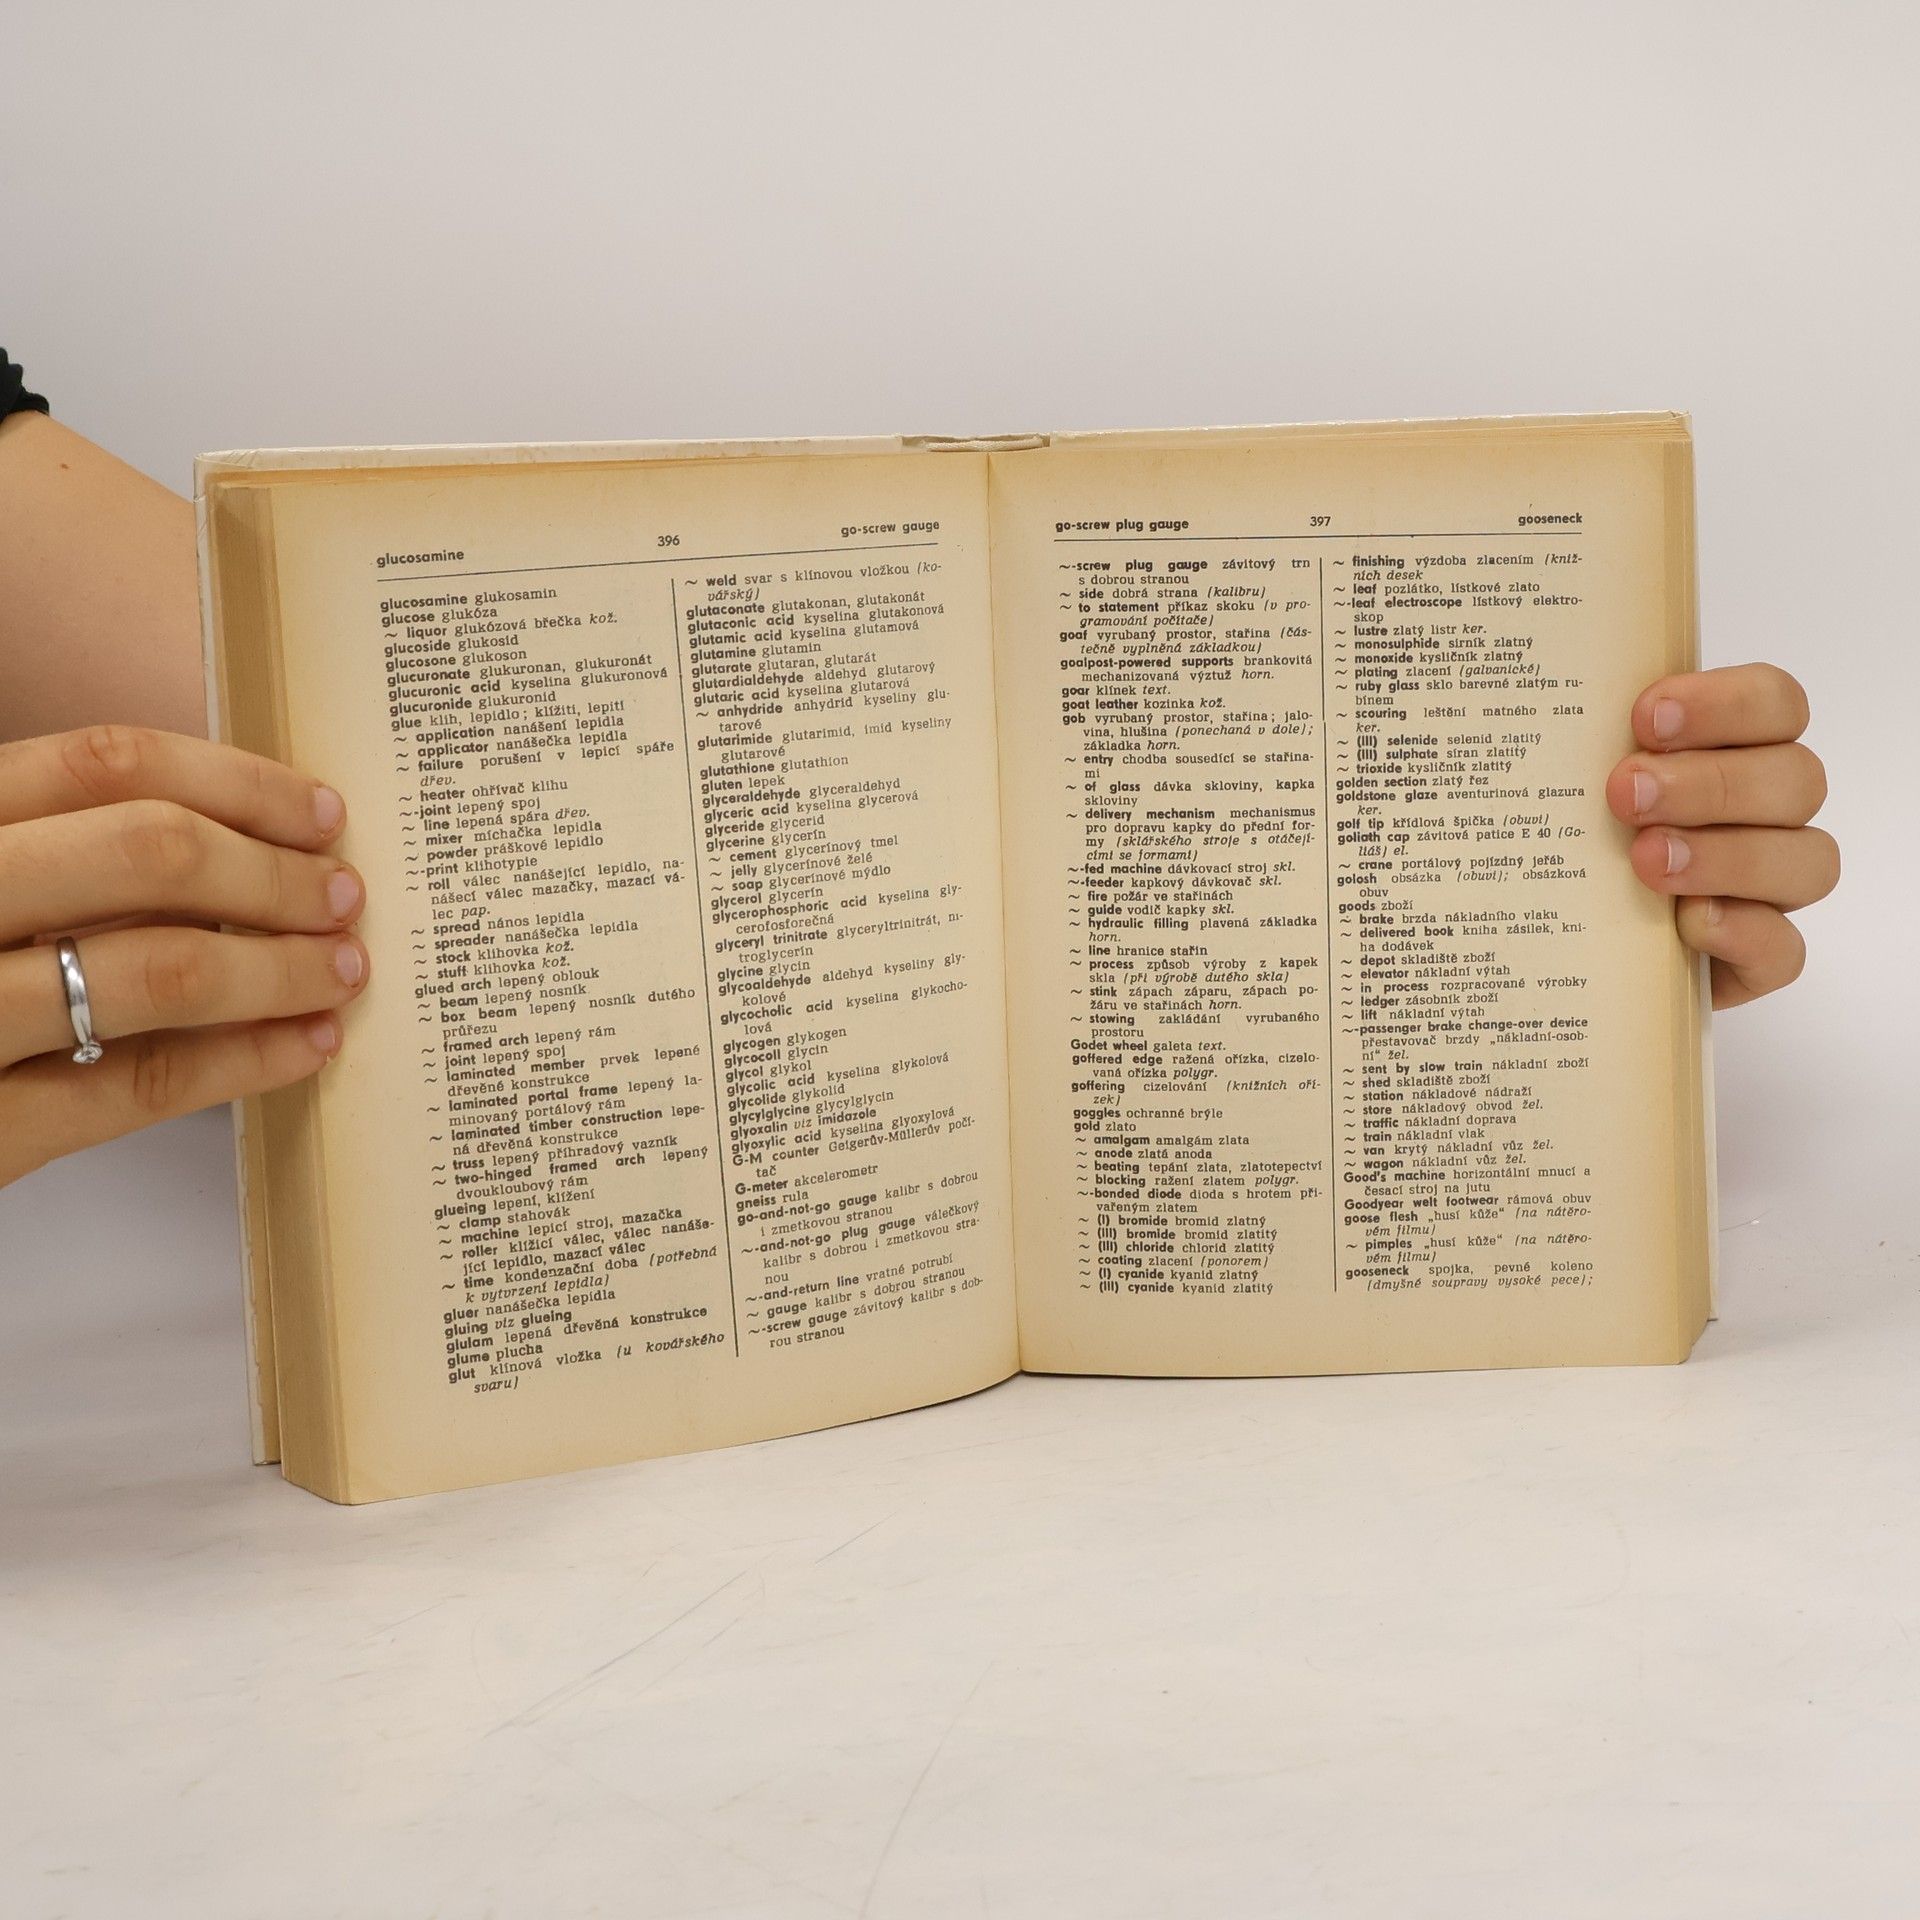 glucosamine 396 go-screw gauge
glucosamine glukosamin
glucose glukóza
~ liquor glukózová břečka kož.
glucoside glukosid
glucosone glukoson
glucuronate glukuronan, glukuronát
glucuronic acid kyselina glukuronová
glucuronide glukuronid
glue klih, lepidlo; klížiti, lepiti
~ application nanášení lepidla
~ applicator nanášečka lepidla
~ failure porušení v lepicí spáře
dřev.
~ heater ohřívač klihu
~-joint lepený spoj
~ line lepená spára dřev.
~ mixer míchačka lepidla
~ powder práškové lepidlo
~-print klihotypie
~ roll válec nanášející lepidlo, na-
nášecí válec mazačky, mazací vá-
lec pap.
~ spread nános lepidla
~ spreader nanášečka lepidla
~ stock klihovka kož.
~ stuff klihovka kož.
glued arch lepený oblouk
~ beam lepený nosník
~ box beam lepený nosník dutého
průřezu
~ framed arch lepený rám
~ joint lepený spoj
~ laminated member prvek lepené
dřevěné konstrukce
~ laminated portal frame lepený la-
minovaný portálový rám
~ laminated timber construction lepe-
ná dřevěná konstrukce
~ truss lepený příhradový vazník
~ two-hinged framed arch lepený
dvoukloubový rám
glueing lepení, klížení
~ clamp stahovák
~ machine lepicí stroj, mazačka
~ roller klížicí válec, válec nanáše-
jící lepidlo, mazací válec
~ time kondenzační doba (potřebná
k vytvrzení lepidla)
gluer nanášečka lepidla
gluing viz glueing
glulam lepená dřevěná konstrukce
glume plucha
glut klínová vložka (u kovářského
svaru)
~ weld svar s klínovou vložkou (ko-
vářský)
glutaconate glutakonan, glutakonát
glutaconic acid kyselina glutakonová
glutamic acid kyselina glutamová
glutamine glutamin
glutarate glutaran, glutarát
glutardialdehyde aldehyd glutarový
glutaric acid kyselina glutarová
~ anhydride anhydrid kyseliny glu-
tarové
glutarimide glutarimid, imid kyseliny
glutarové
glutathione glutathion
gluten lepek
glyceraldehyde glyceraldehyd
glyceric acid kyselina glycerová
glyceride glycerid
glycerine glycerín
~ cement glycerínový tmel
~ jelly glycerínové želé
~ soap glycerínové mýdlo
glycerol glycerín
glycerophosphoric acid kyselina gly-
cerofosforečná
glyceryl trinitrate glyceryltrinitrát, ni-
troglycerín
glycine glycin
glycoaldehyde aldehyd kyseliny gly-
kolové
glycocholic acid kyselina glykocho-
lová
glycogen glykogen
glycocoll glycin
glycol glykol
glycolic acid kyselina glykolová
glycolide glykolid
glycylglycine glycylglycin
glyoxalin viz imidazole
glyoxylic acid kyselina glyoxylová
G-M counter Geigerův-Müllerův počí-
tač
G-meter akcelerometr
gneiss rula
go-and-not-go gauge kalibr s dobrou
i zmetkovou stranou
~-and-not-go plug gauge válečkový
kalibr s dobrou i zmetkovou stra-
nou
~-and-return line vratné potrubí
~ gauge kalibr s dobrou stranou
~-screw gauge závitový kalibr s dob-
rou stranou
go-screw plug gauge 397 gooseneck
~-screw plug gauge závitový trn
s dobrou stranou
~ side dobrá strana (kalibru)
~ to statement příkaz skoku (v pro-
gramování počítače)
goaf vyrubaný prostor, stařina (čás-
tečně vyplněná základkou)
goalpost-powered supports brankovitá
mechanizovaná výztuž horn.
goar klínek text.
goat leather kozinka kož.
gob vyrubaný prostor, stařina; jalo-
vina, hlušina (ponechaná v dole);
základka horn.
~ entry chodba sousedící se stařina-
mi
~ of glass dávka skloviny, kapka
skloviny
~ delivery mechanism mechanismus
pro dopravu kapky do přední for-
my (sklářského stroje s otáčejí-
cími se formami)
~-fed machine dávkovací stroj skl.
~-feeder kapkový dávkovač skl.
~ fire požár ve stařinách
~ guide vodič kapky skl.
~ hydraulic filling plavená základka
horn.
~ line hranice stařin
~ process způsob výroby z kapek
skla (při výrobě dutého skla)
~ stink zápach záparu, zápach po-
žáru ve stařinách horn.
~ stowing zakládání vyrubaného
prostoru
Godet wheel galeta text.
goffered edge ražená ořízka, cizelo-
vaná ořízka polygr.
goffering cizelování (knižních oří-
zek)
goggles ochranné brýle
gold zlato
~ amalgam amalgám zlata
~ anode zlatá anoda
~ beating tepání zlata, zlatotepectví
~ blocking ražení zlatem polygr.
~-bonded diode dioda s hrotem při-
vařeným zlatem
~ (I) bromide bromid zlatný
~ (III) bromide bromid zlatitý
~ (III) chloride chlorid zlatitý
~ coating zlacení (ponorem)
~ (I) cyanide kyanid zlatný
~ (III) cyanide kyanid zlatitý
~ finishing výzdoba zlacením (kniž-
ních desek
~ leaf pozlátko, lístkové zlato
~-leaf electroscope lístkový elektro-
skop
~ lustre zlatý listr ker.
~ monosulphide sirník zlatný
~ monoxide kysličník zlatný
~ plating zlacení (galvanické)
~ ruby glass sklo barevné zlatým ru-
bínem
~ scouring leštění matného zlata
ker.
~ (III) selenide selenid zlatitý
~ (III) sulphate síran zlatitý
~ trioxide kysličník zlatitý
golden section zlatý řez
goldstone glaze aventurinová glazura
ker.
golf tip křídlová špička (obuvi)
goliath cap závitová patice E 40 (Go-
liáš) el.
~ crane portálový pojízdný jeřáb
golosh obsázka (obuvi); obsázková
obuv
goods zboží
~ brake brzda nákladního vlaku
~ delivered book kniha zásilek, kni-
ha dodávek
~ depot skladiště zboží
~ elevator nákladní výtah
~ in process rozpracované výrobky
~ ledger zásobník zboží
~ lift nákladní výtah
~-passenger brake change-over device
přestavovač brzdy „nákladní-osob-
ní“ žel.
~ sent by slow train nákladní zboží
~ shed skladiště zboží
~ station nákladové nádraží
~ store nákladový obvod žel.
~ traffic nákladní doprava
~ train nákladní vlak
~ van krytý nákladní vůz žel.
~ wagon nákladní vůz žel.
Good's machine horizontální mnucí a
česací stroj na jutu
Goodyear welt footwear rámová obuv
goose flesh „husí kůže“ (na nátěro-
vém filmu)
~ pimples „husí kůže“ (na nátěro-
vém filmu)
gooseneck spojka, pevné koleno
(dmyšné soupravy vysoké pece);